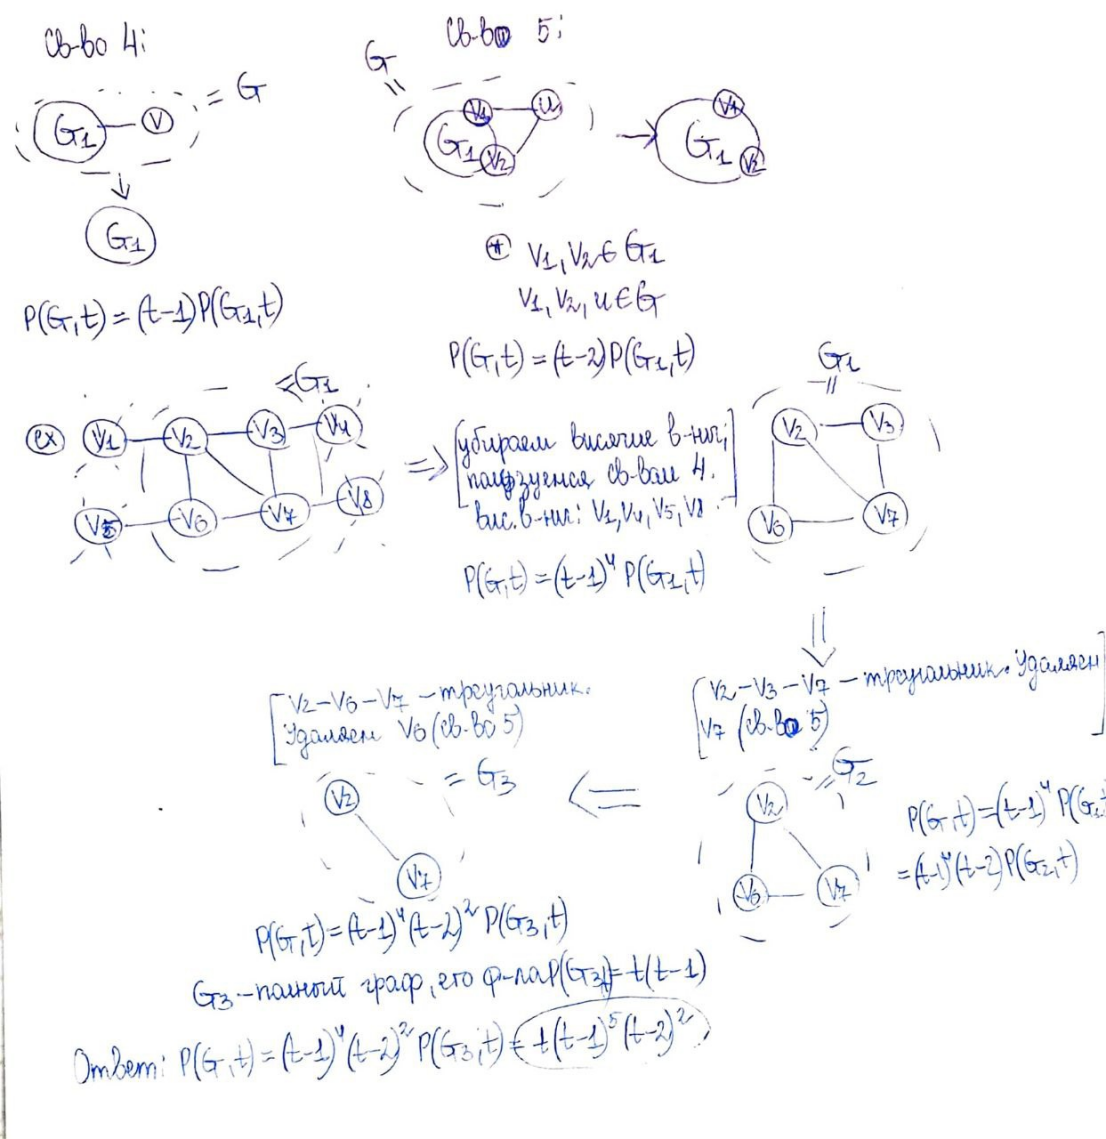 Св-во 4:
G₁ V = G
G₁
P(G,t)=(t-1)P(G₁,t)
Св-во 5:
G
=
G₁ V₁ V₂ u
G₁ V₁ V₂
* V₁, V₂ ∈ G₁
V₁, V₂, u ∈ G
P(G,t)=(t-2)P(G₁,t)
ex
= G₁
V₁ V₂ V₃ V₄
V₅ V₆ V₇ V₈
⇒
[убираем висячие в-ны;
пользуемся св-вом 4.
вис. в-ны: V₁, V₄, V₅, V₈.]
P(G,t)=(t-1)⁴ P(G₁,t)
G₁
=
V₂ V₃
V₆ V₇
⇓
[V₂-V₃-V₇ – треугольник. Удаляем
V₇ (св-во 5)]
= G₂
V₂
V₆ V₇
P(G,t)=(t-1)⁴ P(G₁,t
=(t-1)⁴(t-2)P(G₂,t)
⇐
[V₂-V₆-V₇ – треугольник.
Удаляем V₆ (св-во 5)
= G₃
V₂
V₇
P(G,t)=(t-1)⁴(t-2)² P(G₃,t)
G₃ – полный граф, его ф-ла P(G₃,t)= t(t-1)
Ответ: P(G,t)=(t-1)⁴(t-2)² P(G₃,t) = t(t-1)⁵(t-2)²